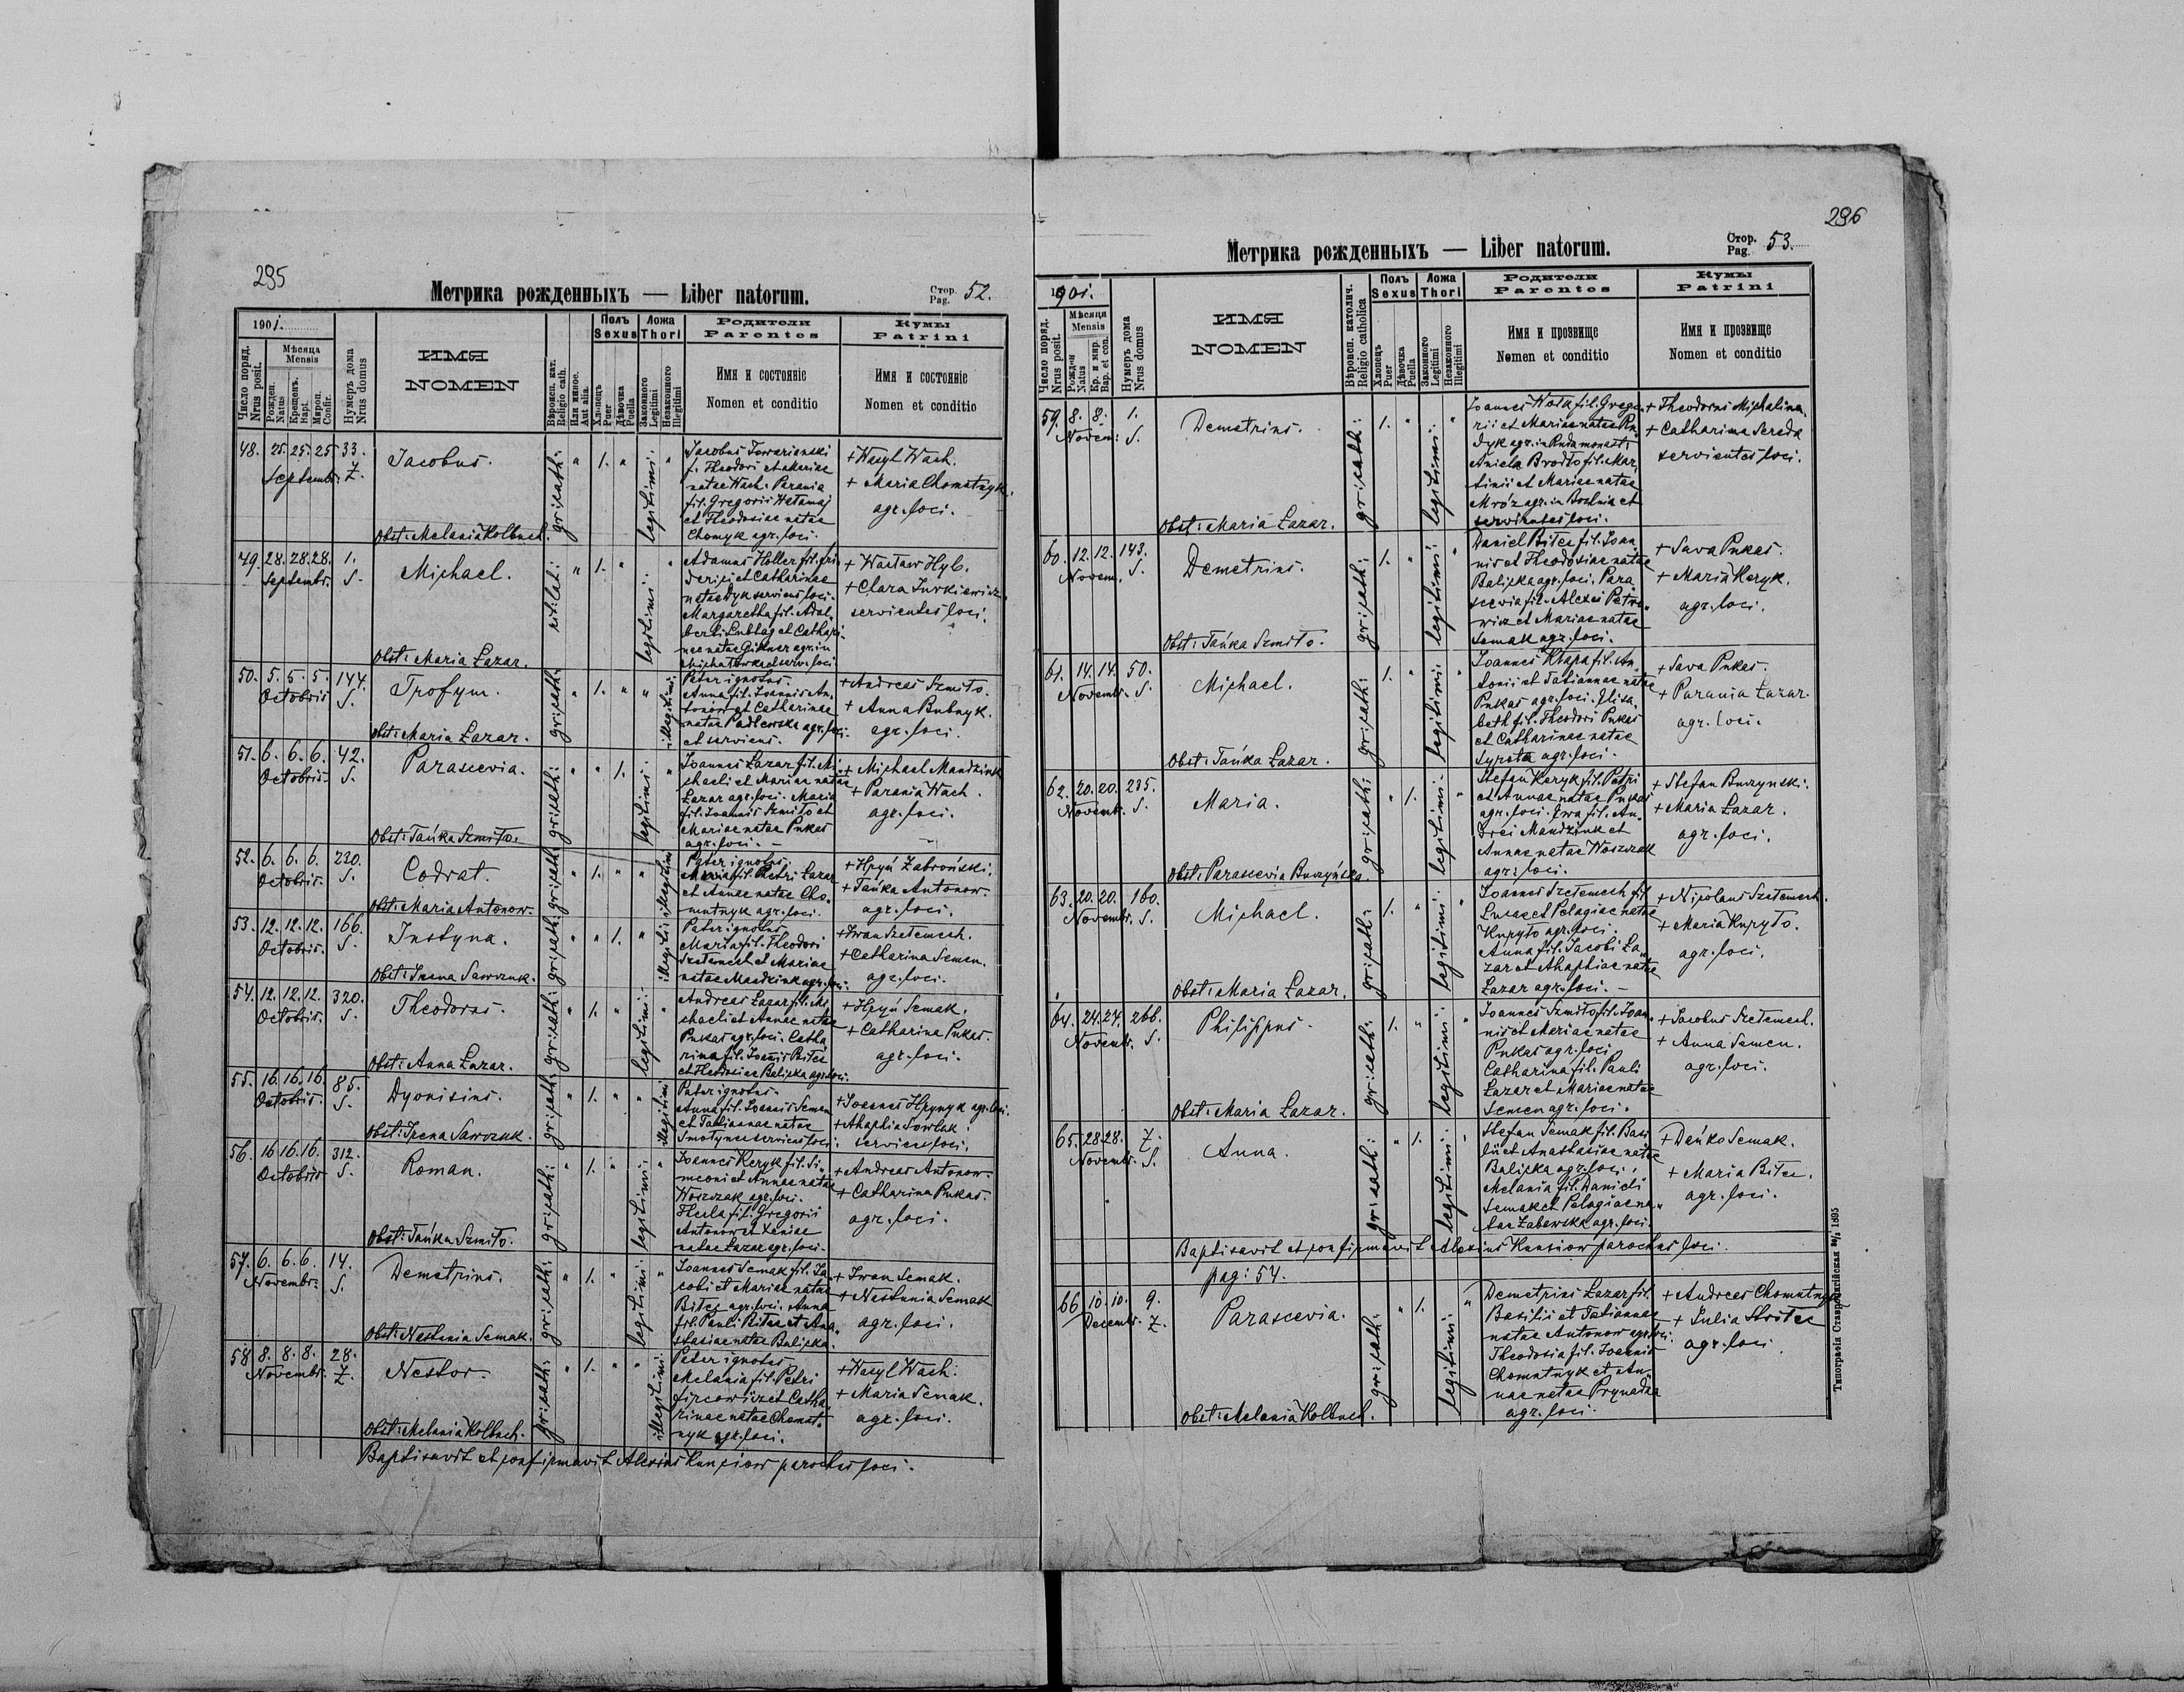 295
Метрика рожденныхъ — Liber natorum.
Стор. Pag. 52.
1901.
Число поряд. Nrus posit.
Мѣсяца Mensis
Рожден. Natus
Крещенъ. Bapt.
Мѵроп. Confir.
Нумеръ дома Nrus domus
ИМЯ
NOMEN
Вѣроисп. кат. Religio cath.
Или иное. Aut alia.
Полъ
Sexus
Хлопецъ Puer
Дѣвочка Puella
Ложа
Thori
Законного Legitimi
Незаконного Illegitimi
Родители
Parentes
Имя и состояніе
Nomen et conditio
Кумы
Patrini
Имя и состояніе
Nomen et conditio
48. 25. 25. 25. 33.
Septembr. Z.
Jacobus.
Obst: Melania Kolbuch.
gr: cath: " 1. " legitimi: "
Jacobus Towarianski
f. Theodori et Mariae
natae Wach. Parania
fil. Gregorii Hetmaj
et Theodosiae natae
Chomyk agr. loci.
+ Wasyl Wach.
+ Maria Chomutnyk.
agr. loci.
49. 28. 28. 28. 1.
Septembr. S.
Michael.
Obst: Maria Łazar.
rit: lat: " 1. " legitimi: "
Adamus Holler fil. Fri
derici et Catharinae
natae Dyk serviens loci.
Margaretha fil. Adal
berti Lubtag et Cathari-
nae natae Gittner agr. in
Michałówka et serv. loci
+ Wacław Hyb.
+ Clara Jurkiewicz
servientes loci.
50. 5. 5. 5. 144.
Octobris S.
Trofym.
Obst: Maria Łazar.
gr: cath: " 1. " " illegitimi:
Pater ignotus.
Anna fil. Joannis An-
tonow et Catharinae
natae Padlewska agr. loci.
et serviens.
+ Andreas Szmiło.
+ Anna Bubnyk.
agr. loci.
51. 6. 6. 6. 42.
Octobris. S.
Parascevia.
Obst: Tańka Szmiło.
gr: cath: " " 1. legitimi: "
Joannes Łazar fil. Mi-
chaeli et Mariae natae
Łazar agr. loci. Maria
fil. Joannis Szmiło et
Mariae natae Pukas
agr. loci. —
+ Michael Mandziuk
+ Parania Wach.
agr. loci.
52. 6. 6. 6. 220.
Octobris. S.
Codrat.
Obst: Maria Antonow.
gr: cath: " 1. " " illegitimi
Pater ignotus.
Maria fil. Petri Łazar
et Annae natae Cho-
mutnyk agr. loci.
+ Hryń Zabroński.
+ Tańka Antonow.
agr. loci.
53. 12. 12. 12. 166.
Octobris. S.
Justyna.
Obst: Irena Sawczuk.
gr: cath: " " 1. " illegitimi
Pater ignotus.
Maria fil. Theodori
Szełemech et Mariae
natae Mandziuk agr. loci.
+ Iwan Szełemech.
+ Catharina Semen.
agr. loci.
54. 12. 12. 12. 320.
Octobris. S.
Theodorus.
Obst: Anna Łazar.
gr: cath: " 1. " legitimi: "
Andreas Łazar fil. Mi-
chaeli et Annae natae
Pukas agr. loci. Catha
rina fil. Joannis Bilec
et Theodosiae Balicka agr. loci.
+ Hryń Semak.
+ Catharina Pukas.
agr. loci.
55. 16. 16. 16. 85.
Octobris. S.
Dyonisius.
Obst: Irena Sawczuk.
gr: cath: " 1. " " illegitimi
Pater ignotus.
Anna fil. Joannis Semen
et Tatiannae natae
Smotynec serviens loci.
+ Joannes Hrynyk agr. loci.
+ Ahaphia Sowtuk.
serviens loci.
56. 16. 16. 16. 312.
Octobris S.
Roman.
Obst: Tańka Szmiło.
gr: cath: " 1. " legitimi: "
Joannes Keryk fil. Si-
meoni et Annae natae
Woszczak agr. loci.
Thecla fil. Gregorii
Antonow et Xeniae
natae Łazar agr. loci.
+ Andreas Antonow.
+ Catharina Pukas.
agr. loci.
57. 6. 6. 6. 14.
Novembr. S.
Demetrius.
Obst: Nastunia Semak.
gr: cath: " 1. " legitimi: "
Joannes Semak fil. Ja-
cobi et Mariae natae
Bilec agr. loci. Anna
fil. Pauli Bilec et Ana-
stasiae natae Balicka.
+ Iwan Semak.
+ Nastunia Semak
agr. loci.
58 8. 8. 8. 28.
Novembr. Z.
Nestor.
Obst: Melania Kolbuch.
gr: cath: " 1. " " illegitimi:
Pater ignotus
Melania fil. Petri
Fircowicz et Catha
rinae natae Chomut-
nyk agr. loci.
+ Wasyl Wach.
+ Maria Semak.
agr. loci.
Baptisavit et confirmavit Alexius Kunciow parochus loci.
296
Метрика рожденныхъ — Liber natorum.
Стор. Pag. 53.
1901.
Число поряд. Nrus posit.
Мѣсяца Mensis
Рожден Natus
Кр. и мир. Bap. et con.
Нумеръ дома Nrus domus
ИМЯ
NOMEN
Вѣроисп. католич. Religio catholica
Полъ
Sexus
Хлопецъ Puer
Дѣвочка Puella
Ложа
Thori
Законного Legitimi
Незаконного Illegitimi
Родители
Parentes
Имя и прозвище
Nomen et conditio
Кумы
Patrini
Имя и прозвище
Nomen et conditio
59. 8. 8. 1.
Novem: S.
Demetrius.
Obst: Maria Łazar.
gr: cath: 1. " legitimi: "
Joannes Wołk fil. Grego-
rii et Mariae natae Ru
dyk agr. in Ruda monast:
Aniela Brodło fil. Mar
tinii et Mariae natae
Mróz agr. in Bochnia et
servientes loci.
+ Theodorus Michalina.
+ Catharina Sereda
servientes loci.
60. 12. 12. 143.
Novem. S.
Demetrius.
Obst: Tańka Szmiło.
gr: cath: 1. " legitimi: "
Daniel Bilec fil. Joan
nis et Theodosiae natae
Balicka agr. loci. Para
scevia fil. Alexii Petro-
wicz et Mariae natae
Semak agr. loci.
+ Sava Pukas.
+ Maria Keryk.
agr. loci.
61. 14. 14. 50.
Novembr. S.
Michael.
Obst: Tańka Łazar.
gr: cath: 1. " legitimi: "
Joannes Kłapa fil. An-
tonii et Tatiannae natae
Pukas agr. loci. Elisa
beth fil. Theodori Pukas
et Catharinae natae
Syrota agr. loci.
+ Sava Pukas.
+ Parania Łazar.
agr. loci.
62. 20. 20. 235.
Novembr. S.
Maria.
Obst: Parascevia Buczyńska.
gr: cath: " 1. legitimi: "
Stefan Keryk fil. Petri
et Annae natae Pukas
agr. loci. Ewa fil. An-
drei Mandziuk et
Annae natae Woszczak
agr. loci.
+ Stefan Buczynski.
+ Maria Łazar.
agr. loci.
63. 20. 20. 160.
Novembr. S.
Michael.
Obst: Maria Łazar.
gr: cath: 1. " legitimi: "
Joannes Szełemech fil
Lucae et Pelagiae natae
Kuryło agr. loci.
Anna fil. Jacobi Ła-
zar et Ahaphiae natae
Łazar agr. loci. —
+ Nicolaus Szełemech.
+ Maria Kuryło.
agr. loci.
64. 24. 24. 266.
Novembr. S.
Philippus.
Obst: Maria Łazar.
gr: cath: 1. " legitimi: "
Joannes Szmiło fil. Joan-
nis et Mariae natae
Pukas agr. loci
Catharina fil. Pauli
Łazar et Mariae natae
Semen agr. loci.
+ Jacobus Szełemech.
+ Anna Semen.
agr. loci.
65. 28. 28. 7.
Novembr. S.
Anna.
gr: cath: " 1. legitimi: "
Stefan Semak fil. Basi
lii et Anastasiae natae
Balicka agr. loci.
Melania fil. Danieli
Semak et Pelagiae na-
tae Zabawska agr. loci.
+ Dańko Semak.
+ Maria Bilec.
agr. loci.
Baptisavit et confirmavit Alexius Kunciow parochus loci.
pag: 54.
66 10. 10. 9.
Decembr. Z.
Parascevia.
Obst: Melania Kolbuch.
gr: cath: " 1. legitimi: "
Demetrius Łazar fil.
Basilii et Tatiannae
natae Antonow agr. loci.
Theodosia fil. Joannis
Chomutnyk et An-
nae natae Prynada
agr. loci.
+ Andreas Chomutnyk
+ Julia Stritec
agr. loci.
Типографія Ставропигійская 1895